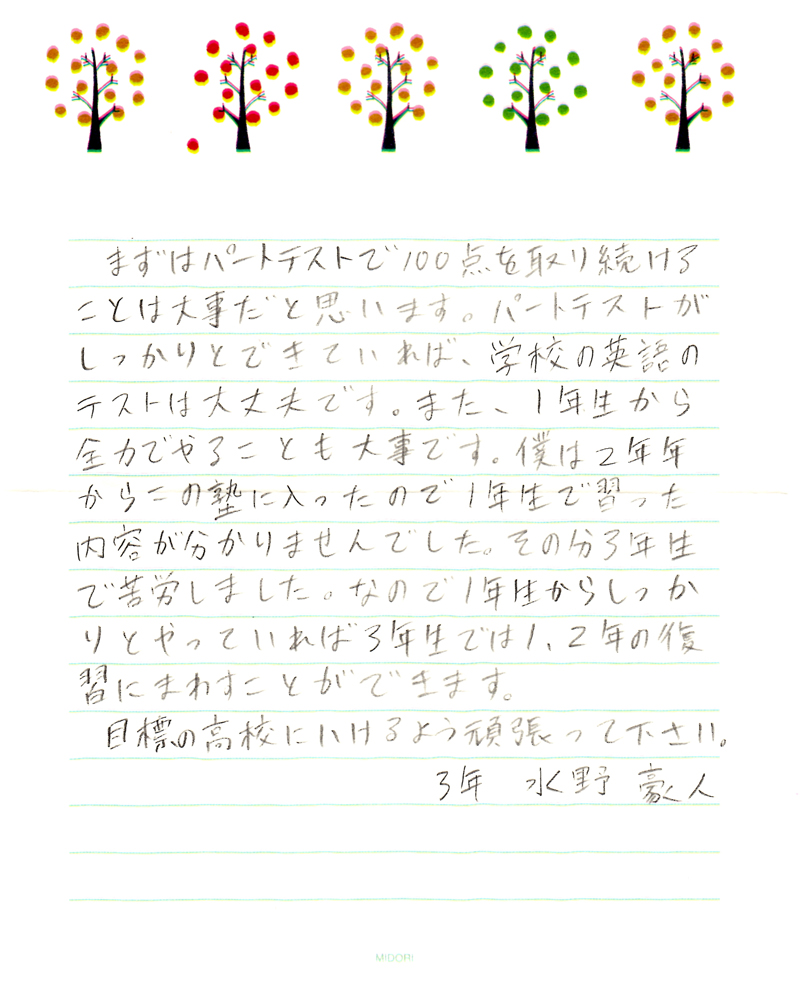 まずはパートテストで100点を取り続ける
ことは大事だと思います。パートテストが
しっかりとできていれば、学校の英語の
テストは大丈夫です。また、1年生から
全力でやることも大事です。僕は2年年
からこの塾に入ったので1年生で習った
内容が分かりませんでした。その分3年生
で苦労しました。なので1年生からしっか
りとやっていれば3年生では1、2年の復
習にまわすことができます。
目標の高校にいけるよう頑張って下さい。
3年 水野 豪人
MIDORI